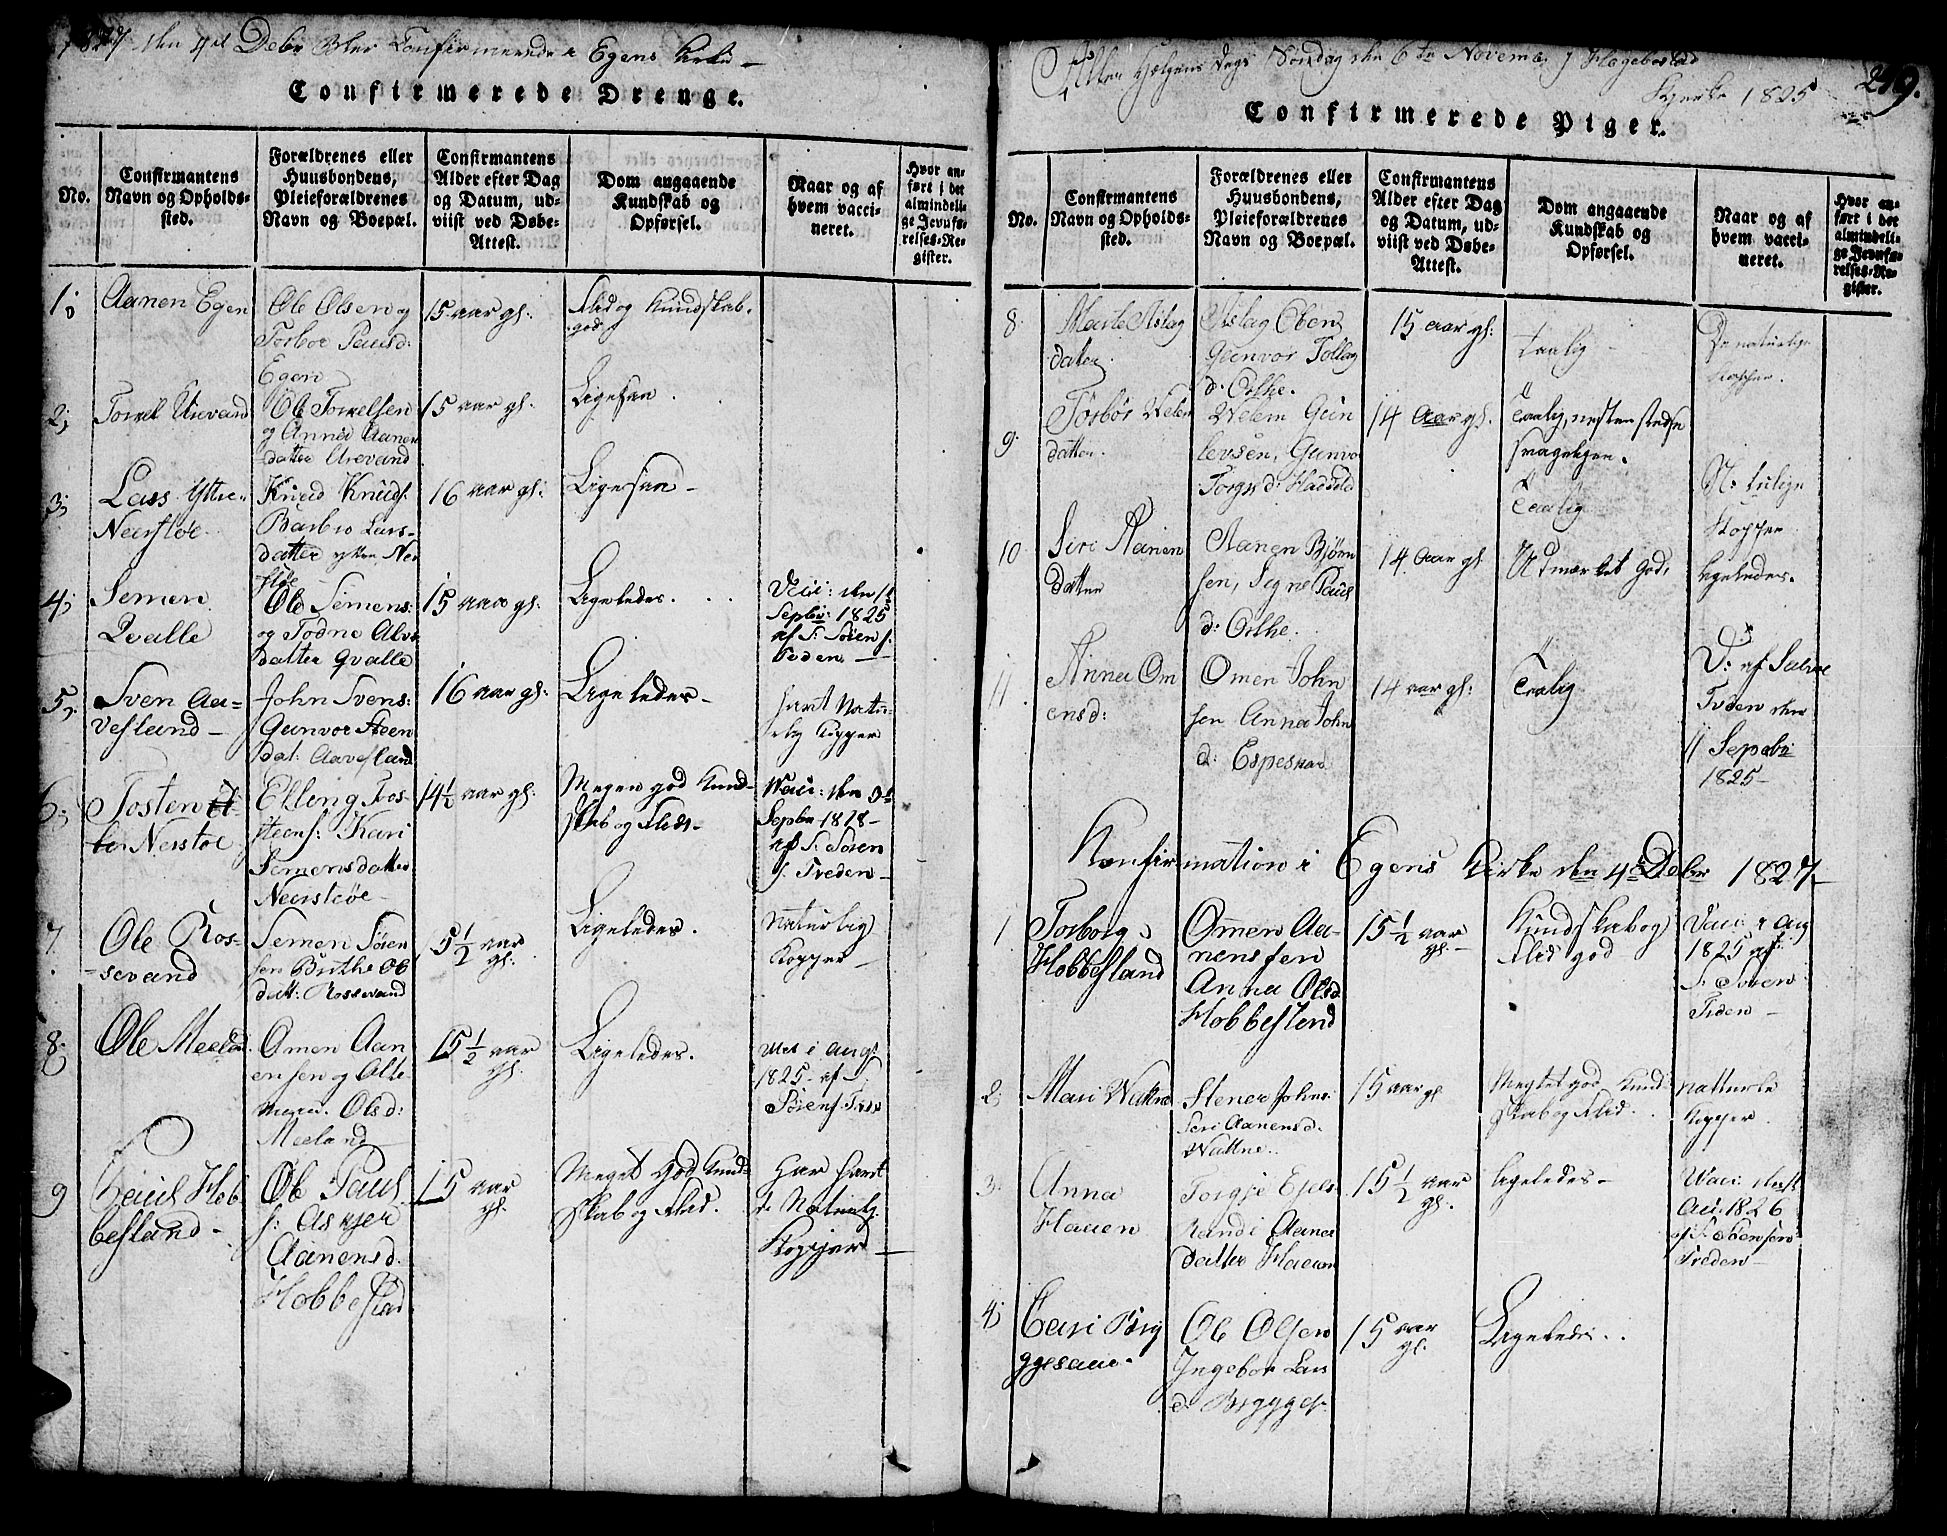 1827 den 4de Debr Blev Confirmerede i Egens Kirke –
Confirmerede Drenge.
No.
Confirmantens
Navn og Opholds-
sted.
Forældrenes eller
Huusbondens,
Pleieforældrenes
Navn og Boepæl.
Confirmantens
Alder efter Dag
og Datum, ud-
viist ved Døbe-
Attest.
Dom angaaende
Kundskab og
Opførsel.
Naar og af
hvem vacci-
neret.
Hvor an-
ført i det
almindeli-
ge Jevnfø-
relses-Re-
gister.
1;
Aanen Egen
Ole Olsen og
Torbor Paulsd:
Egen
15 aar gl:
Flid og Kundskab
god
2;
Ole Torrelsen
og Anna Aanen
datter Urevand
15 aar gl:
Ligesaa
3;
Lars Ytte
Neerstøe
Knud Knuds:
Barbro Lars-
datter ytter Ner
støe
16 aar gl:
Ligesaa –
4;
Semen
Qvalle
Ole Simens:
og Todne Alve
datter Qvalle
15 aar gl:
Ligeledes.
Vaci: den 1t
Sepbr: 1825
af S: Sören s:
Treden –
5;
Sven Aa-
vesland –
John Svens:
Gunvor Steen
dat: Aavesland
16 aar gl:
Ligeledes –
havt Natu-
rlig Kopper
6;
Tosten
Nerstøe
Elling Tos-
steens: Kari
Semensdatter
Neerstøe –
14½ aar gl:
Megen god Kund-
skab og Flid –
Vaci: den
Sepbr 1828 –
af S. Sören
s: Treden –
7
Ole Ros-
sevand
Semen Sören
sen Birthe Ole
datt: Rossevand
5½ aar
gl:
Ligeledes.
Naturlig
Kopper –
8;
Ole Meeland
Omen Aan
ensen og Olle
Olsd:
Meeland
15½ aar
gl:
Ligeledes.
i Aug:
1825 – af S.
Sörens: Tre
9
Hob
besland –
Ole Pauls
s: Asgjer
Aanensd.
Hobbesland
15 aar
gl.
Meget god Kund-
skab og Flid.
Har havt
de Naturlg.
Kopper –
Alle Helgens Dags Söndag den 6te Novemb. i Hegebostad
Kjerke 1825
249.
Confirmerede Piger.
No.
Confirmantens
Navn og Opholds-
sted.
Forældrenes eller
Huusbondens,
Pleieforældrenes
Navn og Boepæl.
Confirmantens
Alder efter Dag
og Datum, ud-
viist ved Døbe-
Attest.
Dom angaaende
Kundskab og
Opførsel.
Naar og af
hvem vacci-
neret.
Hvor an-
ført i det
almindeli-
ge Jevnfø-
relses-Re-
gister.
8.
Marte Aslag
datter.
Aslag Olsen
Gunvor Tollag
d:
15 aar gl:
taalig –
De naturlige
Kopper.
9.
Torbor Velem
datter.
Velem Gun
levsen, Gunvor
Torgrsd:
14 Aar gl.
Taalig, nesten stedse
svagelgen.
Taalig
Naturlige
Kopper
10
Seri Aanen
datter
Aanen Björn
sen, Segne Pauls
d:
14 Aar gl
Udmærket god,
ligeledes.
11
Anna Om
ensd:
Omen John
sen Anna John
d: Espesnad
14 aar gl:
Taalig
V: af Salve
Treden den
11 Sepabr
1825 –
Konfirmation i Egens Kirke den 4de Debr 1827 –
1
Torborg
Hobbesland
Omen Aa-
nenssen
Anna Olsd.
Hobbesland
15½ aar
gl. –
Kundskab og
Flid god
Vaci i Aug
1825 af
S. Sören
Treden –
2;
Mari Wattne
Stener Johns:
Seri Aanensd.
Wattne.
15 aar gl
Meget god Kund-
skab og Flid.
natturle
Kopper
3.
Anna
Hauen
Torgje Ejels
Randi Aanen
datter Hauen
15½ aar
gl.
ligeledes –
Vaci:
1826
af S.
Treden –
4;
Cari Brig
ggesaae.
Ole Olsen
Ingebor Lars
d: Briggges.
15 aar
gl.
Ligeledes.